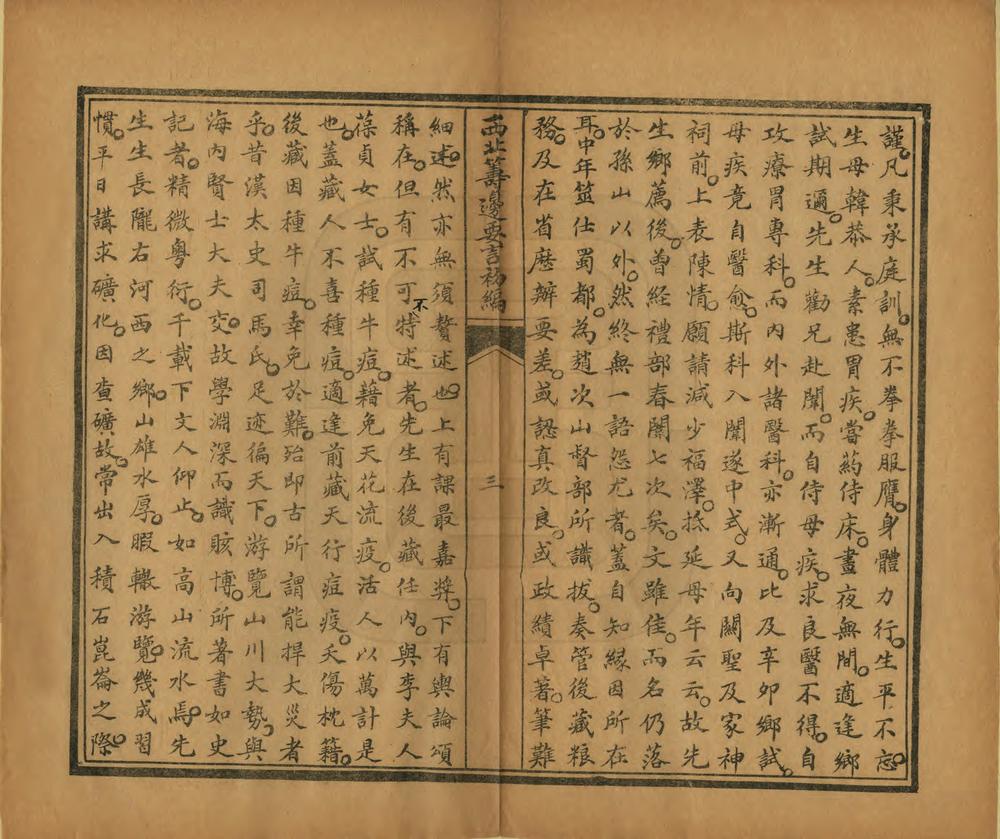 謹。凡秉承庭訓。無不拳拳服膺。身體力行。生平不忘。
生母韓恭人。素患胃疾。嘗葯侍床。晝夜無間。適逢鄉
試期邇。先生勸兄赴闈。而自侍母疾。求良醫不得。自
攻療胃專科。而內外諸醫科。亦漸通。比及辛卯鄉試。
母疾竟自醫愈。斯科入闈遂中式。又向關聖及家神
祠前。上表陳情。願請減少福澤。抵延母年云云。故先
生鄉薦後。曾経禮部春闈七次矣。文雖佳。而名仍落
於孫山以外。然終無一語怨尤者。蓋自知緣因所在
耳。中年筮仕蜀都。為趙次山督部所識拔。奏管後藏粮
務。及在省歷辦要差。或認真改良。或政績卓著。筆難
西北籌邊要言初編
三
細述。然亦無須贅述也。上有課最嘉奬。下有輿論頌
稱在。但有不可不特述者。先生在後藏任內。與李夫人
葆貞女士。試種牛痘。藉免天花流疫。活人以萬計是
也。蓋藏人不喜種痘。適逢前藏天行痘疫。夭傷枕籍。
後藏因種牛痘。幸免於難。殆即古所謂能捍大災者
乎。昔漢太史司馬氏。足迹徧天下。游覽山川大勢。與
海內賢士大夫交。故學淵深而識賅博。所著書如史
記者。精微粵衍。千載下文人仰止。如高山流水焉。先
生生長隴右河西之鄉。山雄水厚。暇輙游覽。幾成習
慣。平日講求礦化。因查礦故。常出入積石崑崙之際。